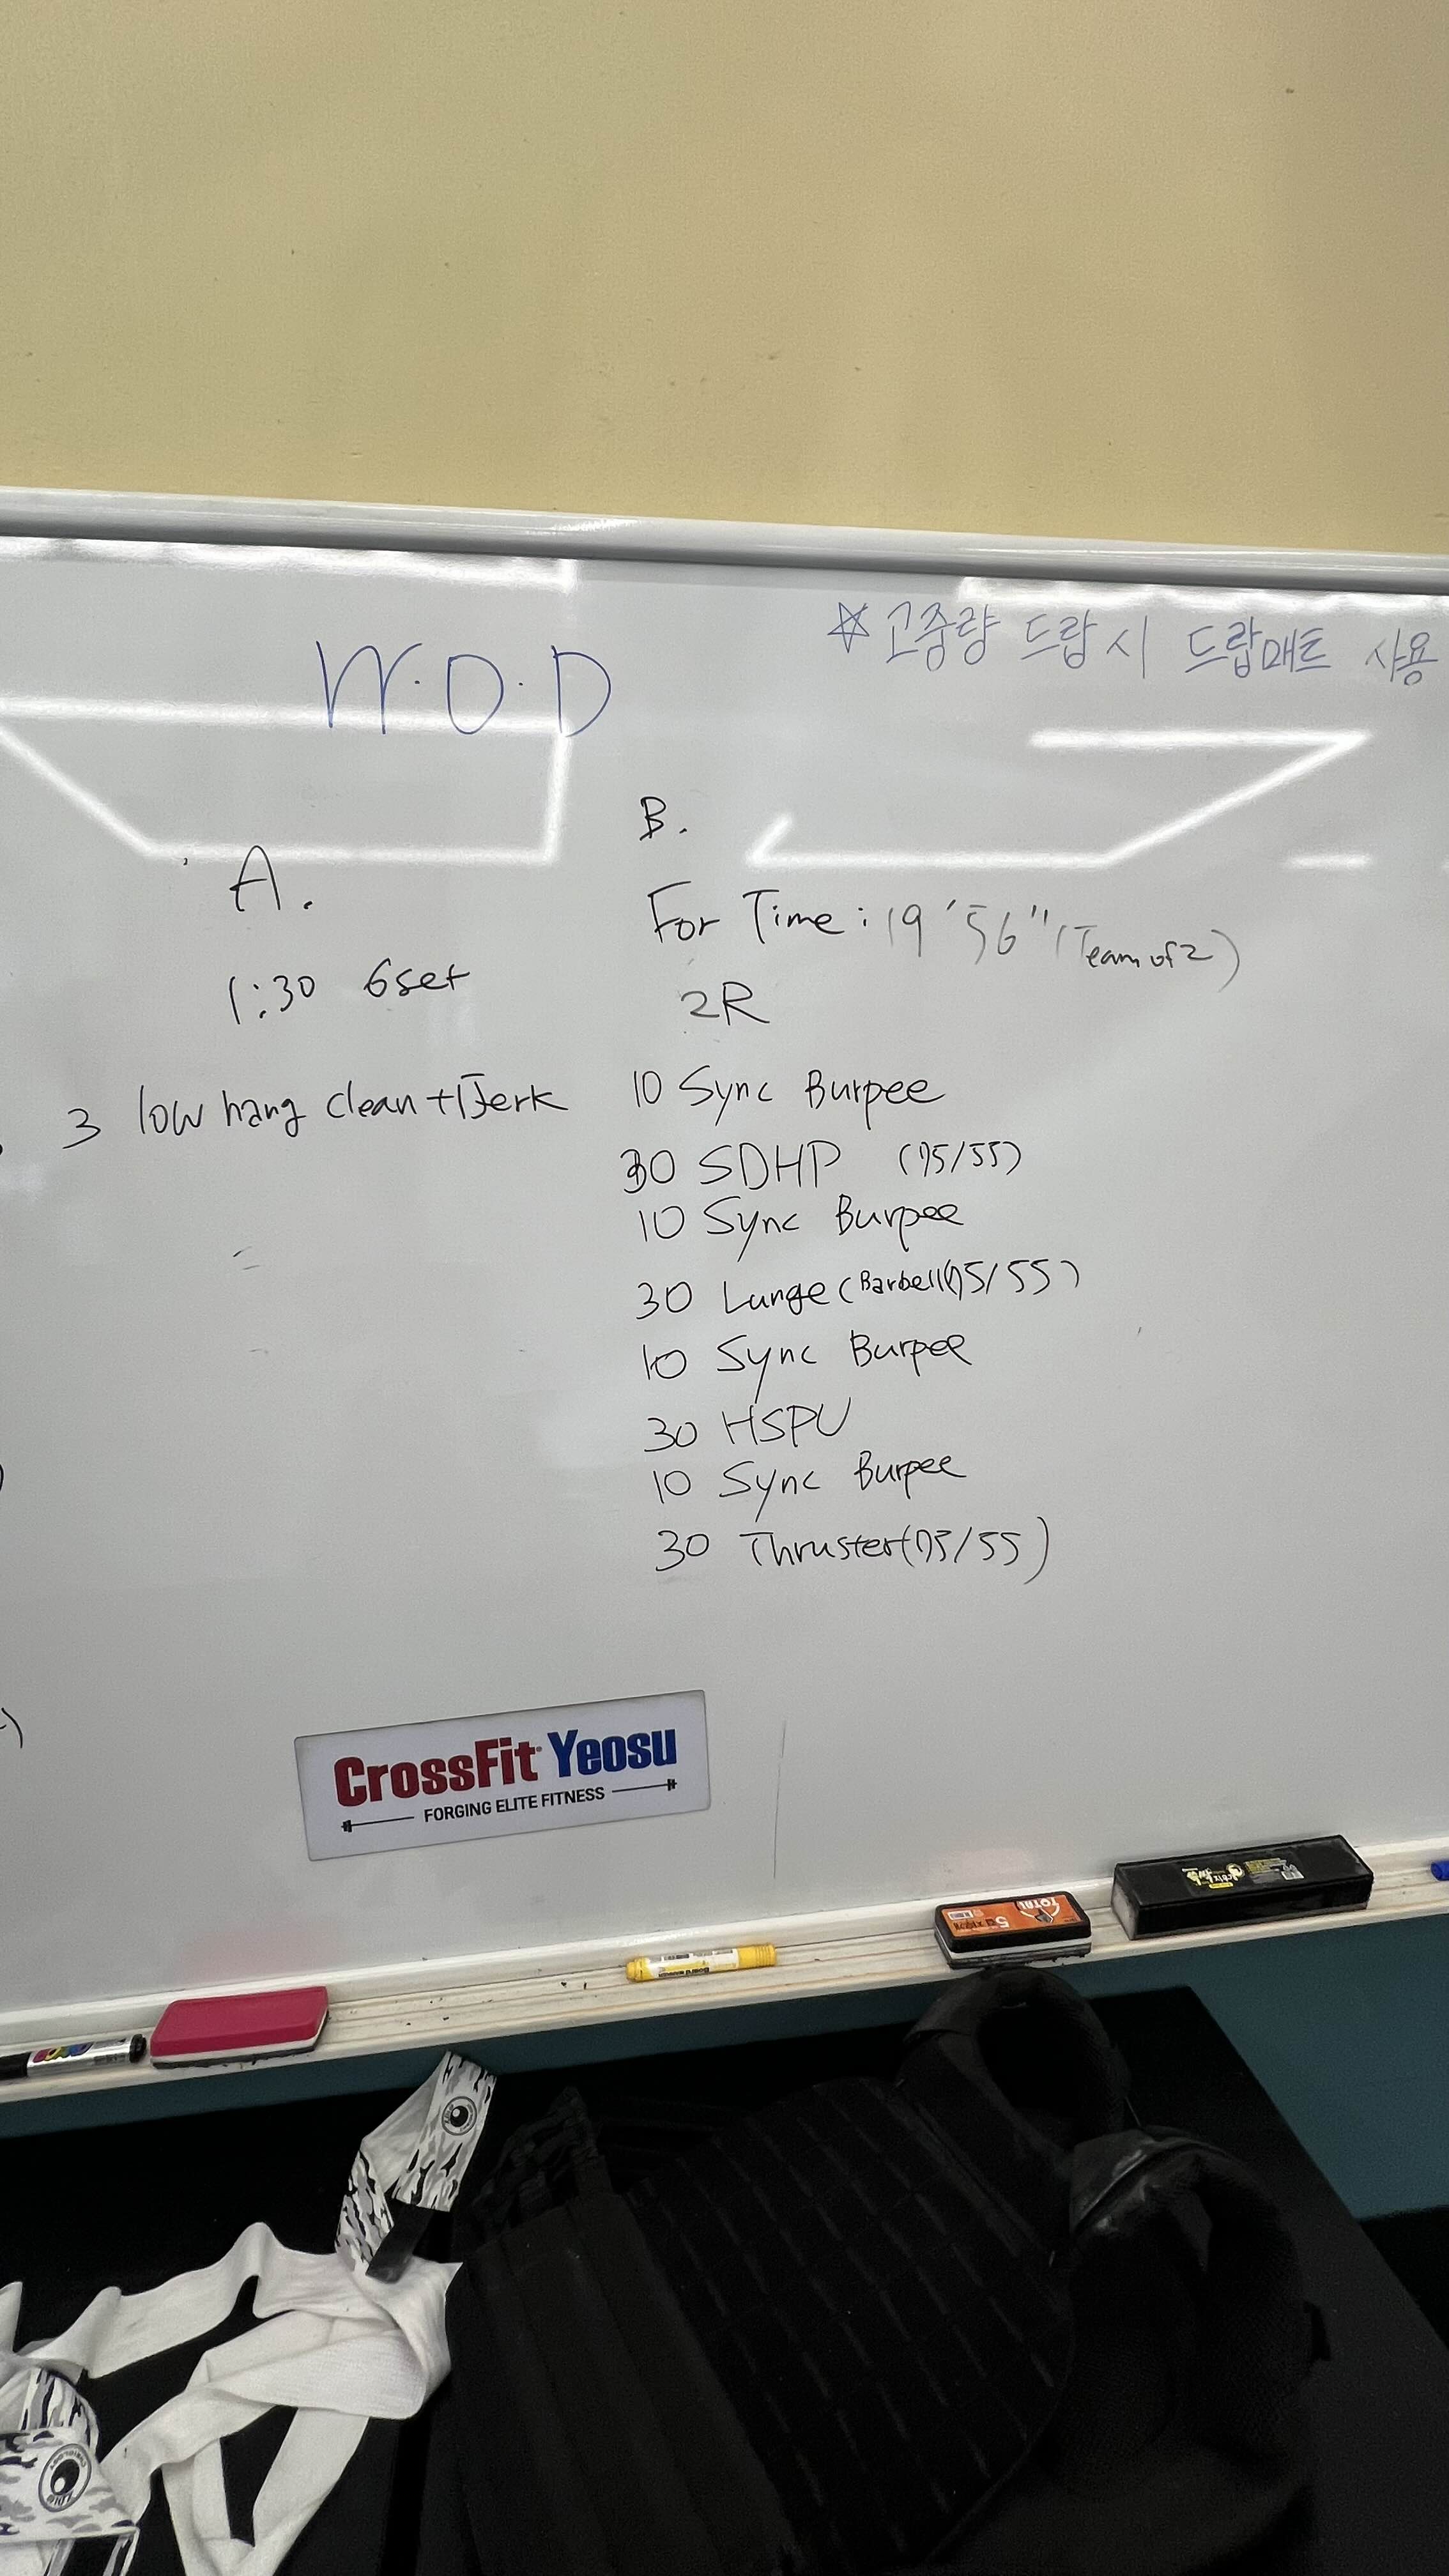 W.O.D
☆ 고중량 드랍 시 드랍매트 사용
A.
1:30 6set
3 low hang clean +1Jerk
B.
For Time : 19'56" (Team of 2)
2R
10 Sync Burpee
30 SDHP (75/55)
10 Sync Burpee
30 Lunge (Barbell(75/55)
10 Sync Burpee
30 HSPU
10 Sync Burpee
30 Thruster(75/55)
CrossFit Yeosu
FORGING ELITE FITNESS
TOTAL
Board marker